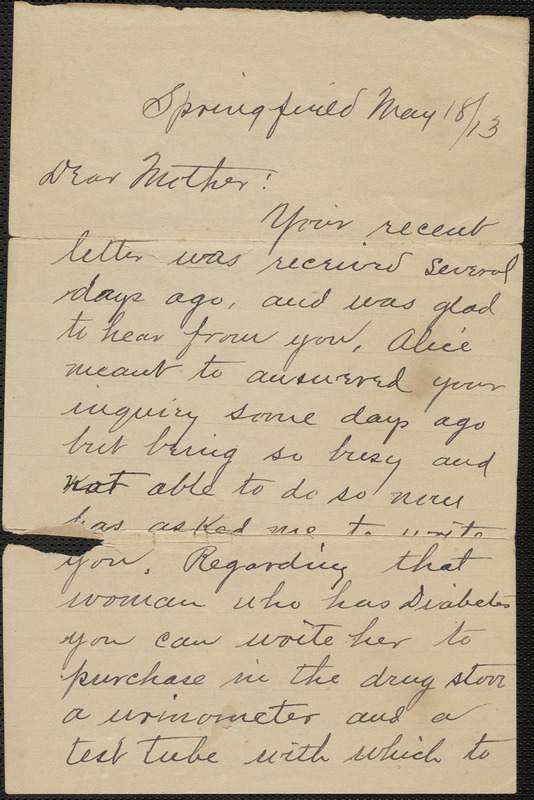 Springfield May 18/13
Dear Mother:
Your recent
letter was received several
days ago, and was glad
to hear from you, Alice
meant to answered your
inquiry some days ago
but being so busy and
not able to do so now
has asked me to write
you. Regarding that
woman who has Diabetes
you can write her to
purchase in the drug stoor
a urinometer and a
test tube with which to